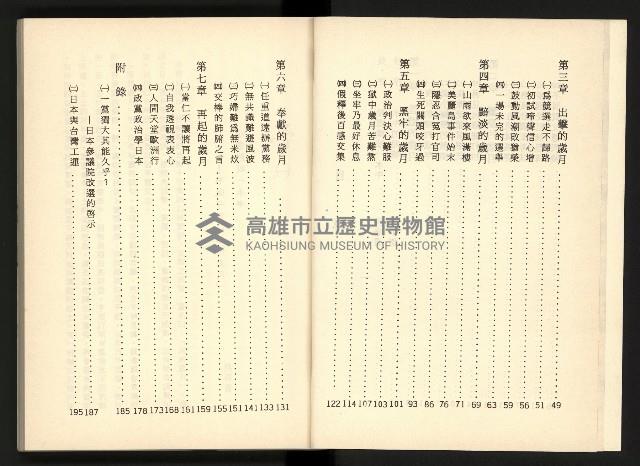 第三章　出擊的歲月 49
㈠為競選走不歸路 51
㈡初試啼聲信心增 56
㈢鼓動風潮政猶榮 59
㈣一場未完的選舉 63
第四章　黯淡的歲月 69
㈠山雨欲來風滿樓 71
㈡美麗島事件始末 76
㈢隱忍含冤打官司 86
㈣生死關頭咬牙過 93
第五章　黑牢的歲月 101
㈠政治判決心難服 103
㈡獄中歲月苦難熬 107
㈢坐牢乃最好休息 114
㈣假釋後百感交集 122
第六章　奉獻的歲月 131
㈠任重道遠辦黨務 133
㈡無共識難避風波 141
㈢巧婦難為無米炊 151
㈣交棒的肺腑之言 155
第七章　再起的歲月 159
㈠當仁不讓將再起 161
㈡自我透視表衷心 168
㈢人間天堂歐洲行 173
㈣政黨政治學日本 178
附　錄 185
㈠一黨獨大其能久乎？
—日本參議院改選的啓示 187
㈡日本與台灣工運 195
高雄市立歷史博物館
KAOHSIUNG MUSEUM OF HISTORY